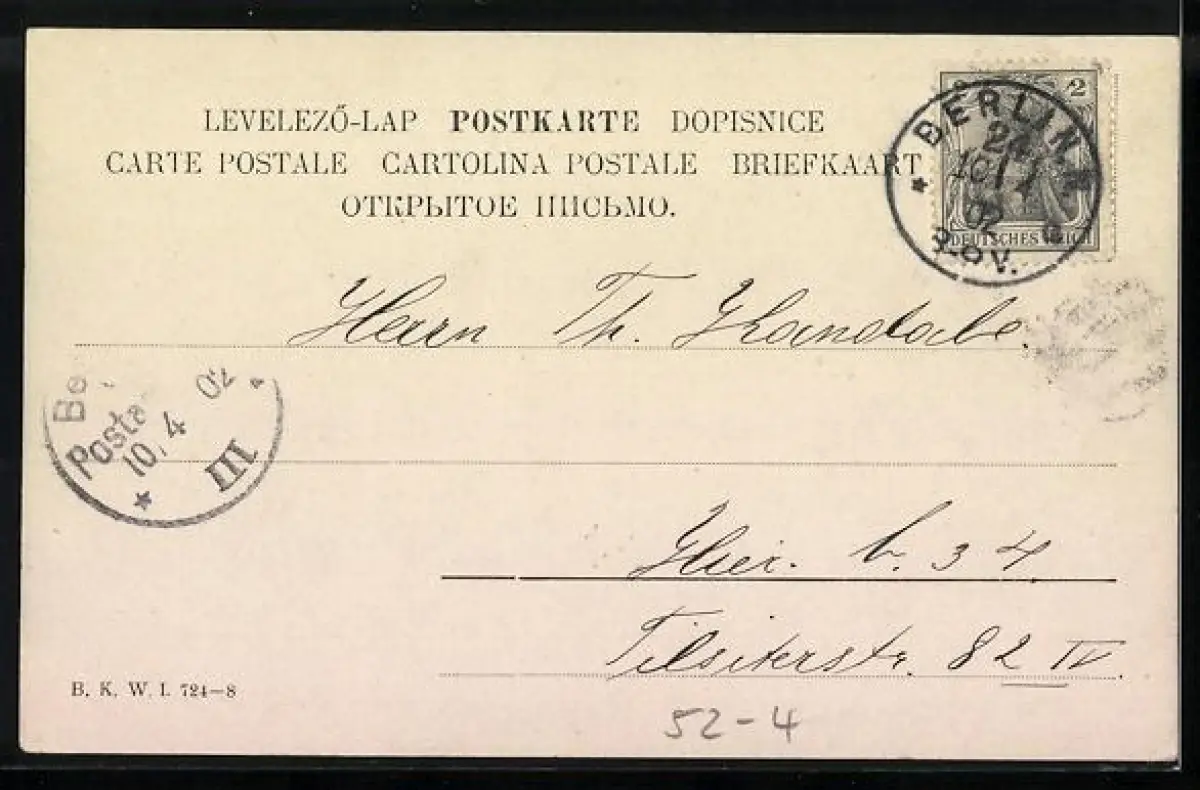 LEVELEZŐ-LAP POSTKARTE DOPISNICE
CARTE POSTALE CARTOLINA POSTALE BRIEFKAART
ОТКРЫТОЕ ПИСЬМО.
2
BERLIN
10/4
02
8-9V.
DEUTSCHES REICH
Herrn Th.
Be
Posta
10. 4 02
III
Hier. 34
Tilsiterstr. 82 IV.
B. K. W. I. 724–8
52-4